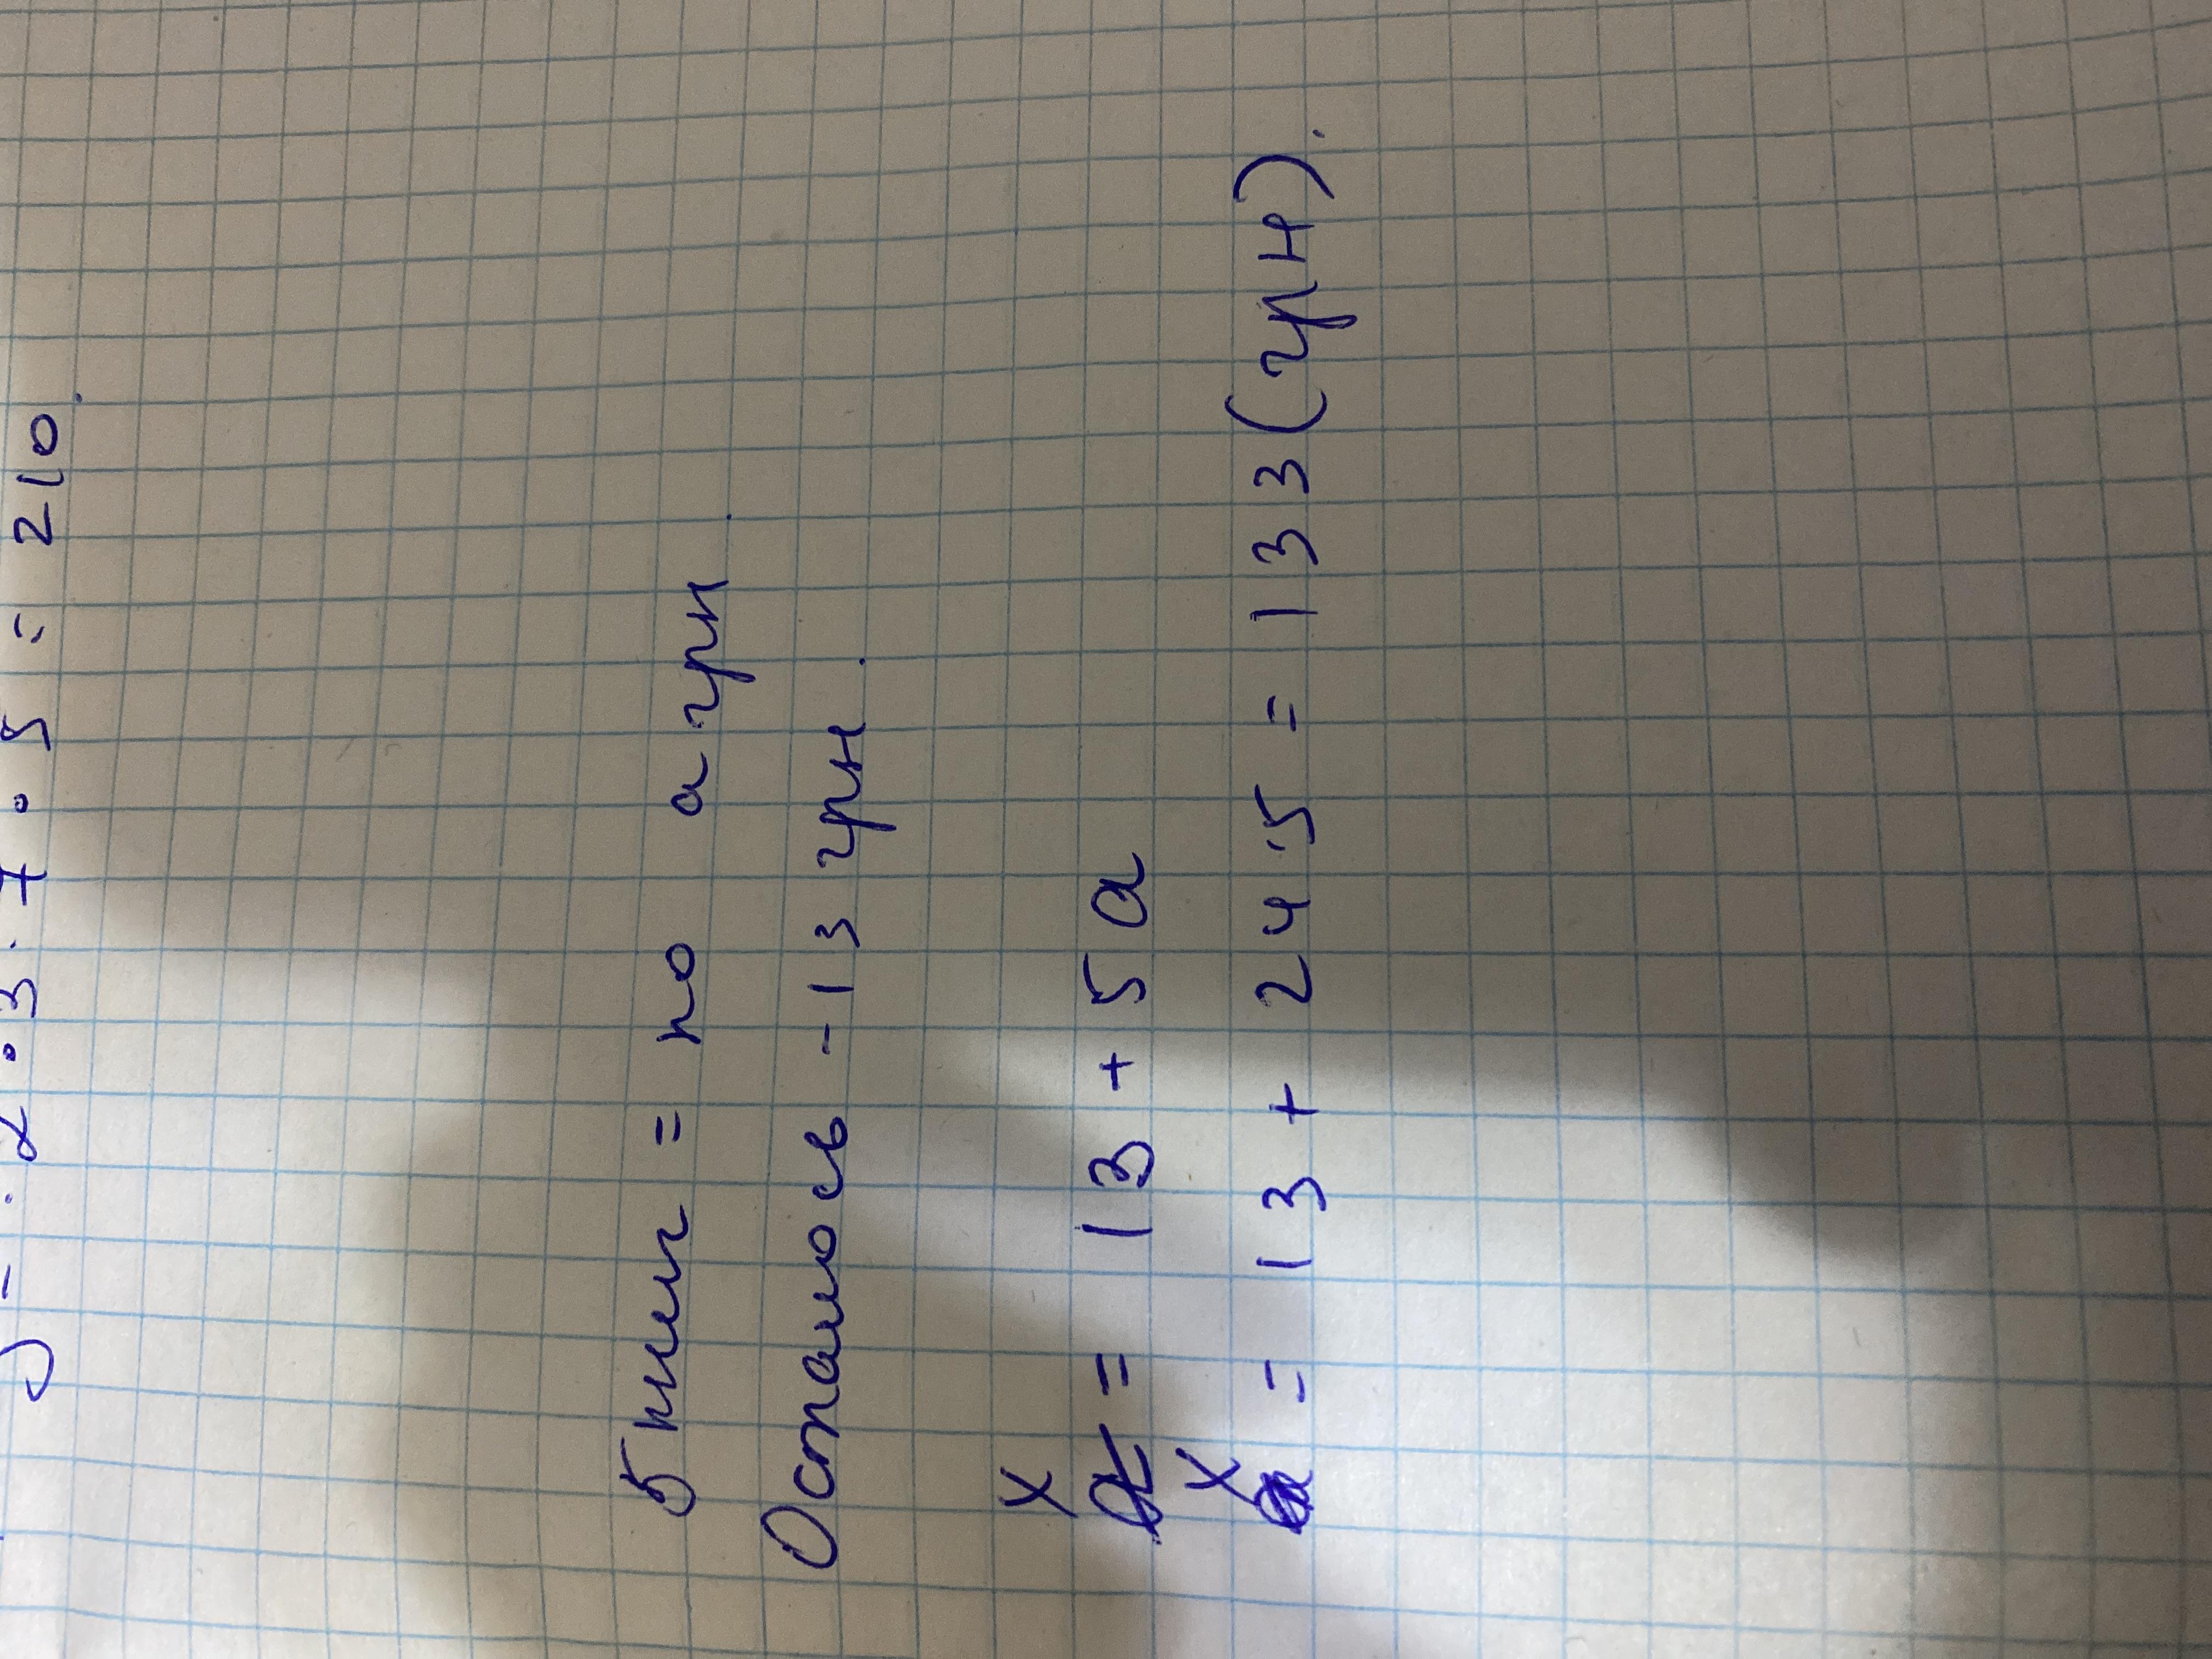 2 · 3 · 7 · 5 = 210.
5 книг = по а грн.
Осталось - 13 грн.
х = 13 + 5а
х = 13 + 24·5 = 133 (грн).